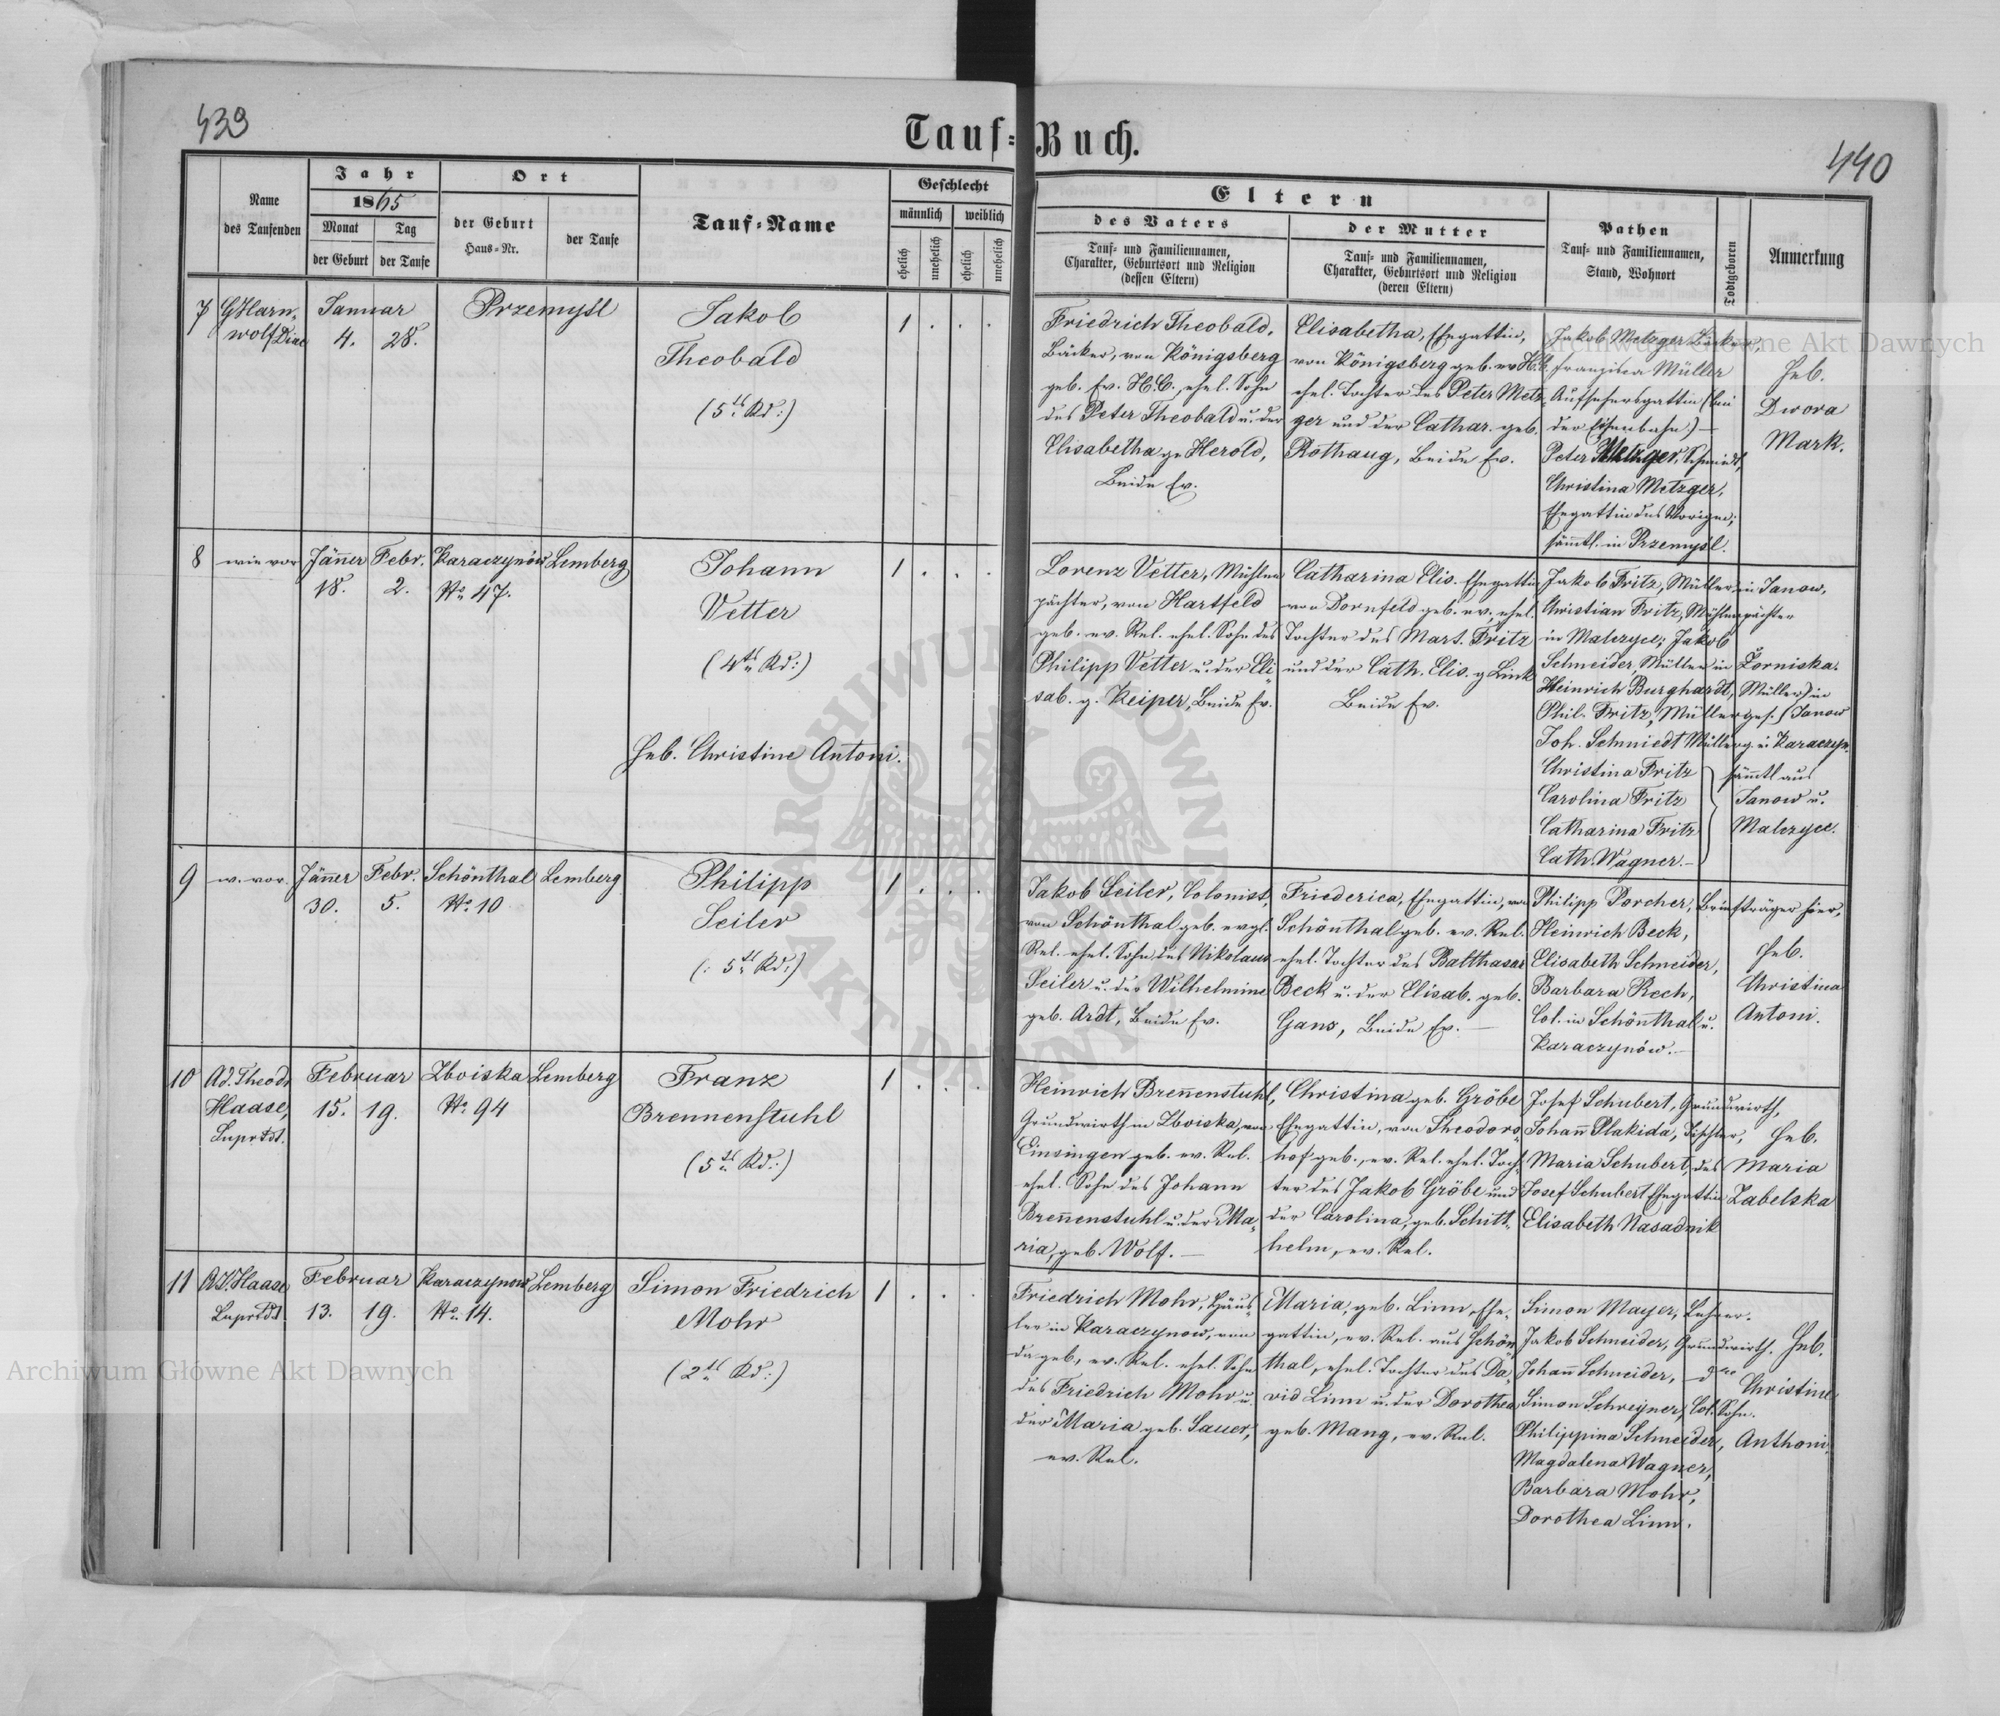 439
440
Tauf-Buch.
Name
des Taufenden
Jahr
1865
Monat
Tag
der Geburt
der Taufe
Ort
der Geburt
Haus-Nr.
der Taufe
Tauf-Name
Geschlecht
männlich
weiblich
ehelich
unehelich
ehelich
unehelich
Eltern
des Vaters
Tauf- und Familiennamen,
Charakter, Geburtsort und Religion
(dessen Eltern)
der Mutter
Tauf- und Familiennamen,
Charakter, Geburtsort und Religion
(deren Eltern)
Pathen
Tauf- und Familiennamen,
Stand, Wohnort
Todtgeboren
Anmerkung
7
GHarn-
wolf Diac
Januar
4. 28.
Przemysl
Jakob
Theobald
(5tes Kd:)
1 . . .
Friedrich Theobald,
Bäcker, von Königsberg
geb. Ev. H.C., ehel. Sohn
des Peter Theobald u. der
Elisabetha g. Herold,
Beide Ev.
Elisabetha, Ehegattin,
von Königsberg geb. ev H.C.
ehel. Tochter des Peter Metz-
ger und der Cathar. geb.
Rothaug, Beide Ev.
Jakob Metzger Bäcker,
Franzisca Müller
Aufsehersgattin (bei
der Eisenbahn) —
Peter Metzger, Schmidt,
Christina Metzger,
Ehegattin des Vorigen;
sämmtl. in Przemysl.
Heb.
Dwora
Mark.
8
wie vor
Jänner
18.
Febr.
2.
Karaczynów
No. 47.
Lemberg
Johann
Vetter
(4tes Kd:)
Heb. Christine Antoni.
1 . . .
Lorenz Vetter, Mühlen
pächter, von Hartfeld
geb. ev. Rel. ehel. Sohn des
Philipp Vetter u. der Eli-
sab. g. Keiper, Beide Ev.
Catharina Elis. Ehegattin
von Dornfeld geb. ev., ehel.
Tochter des Mart. Fritz
und der Cath. Elis. g. Link
Beide Ev.
Jakob Fritz, Müller in Janow,
Christian Fritz, Mühlenpächter
in Malczyce; Jakob
Schneider, Müller in Żorniska.
Heinrich Burghardt, Müller) in
Phil. Fritz, Müllerges. ( Janow
Joh. Schmiedt Müllerg. in Karaczyn.
Christina Fritz
Carolina Fritz
Catharina Fritz
Cath. Wagner.—
sämmtl aus
Janow u.
Malczyce.
9
w. vor.
Jänner
30.
Febr.
5.
Schönthal
No. 10
Lemberg
Philipp
Seiler
(: 5tes Kd:)
1 . . .
Jakob Seiler, Colonist,
von Schönthal geb. evgl.
Rel. ehel. Sohn des Nikolaus
Seiler u. der Wilhelmine
geb. Ardt, Beide Ev.
Friederica, Ehegattin, von
Schönthal geb. ev. Rel.
ehel. Tochter des Balthasar
Beck u. der Elisab. geb.
Gans, Beide Ev. —
Philipp Porcher, Briefträger hier,
Heinrich Beck,
Elisabeth Schneider,
Barbara Rech,
Col. in Schönthal u.
Karaczynów.—
Heb.
Christina
Antoni.
10
Ad. Theodr
Haase,
Suprtdt.
Februar
15. 19.
Zboiska
No. 94
Lemberg
Franz
Brennenstuhl
(5tes Kd:)
1 . . .
Heinrich Breñenstuhl,
Grundwirth in Zboiska, von
Einsingen geb. ev. Rel.
ehel. Sohn des Johann
Breñenstuhl u. der Ma-
ria, geb. Wolf. —
Christina geb. Gröbe
Ehegattin, von Theodors-
hof geb., ev. Rel. ehel. Toch-
ter des Jakob Gröbe und
der Carolina, geb. Schitt-
helm, ev. Rel.
Josef Schubert, Grundwirth,
Johañ Plakida, Tischler,
Maria Schubert, des
Josef Schubert Ehegattin
Elisabeth Nasadnik
Heb.
Maria
Zabelska
11
A.T. Haase
Suprtdt
Februar
13. 19.
Karaczynow
No. 14.
Lemberg
Simon Friedrich
Mohr
(2tes Kd:)
1 . . .
Friedrich Mohr, Häus-
ler in Karaczynow, von
da geb., ev. Rel. ehel. Sohn
des Friedrich Mohr u.
der Maria geb. Sauer,
ev. Rel.
Maria, geb. Linn, Ehe-
gattin, ev. Rel. aus Schön-
thal, ehel. Tochter des Da-
vid Linn u. der Dorothea
geb. Mang, ev. Rel.
Simon Mayer, Lehrer.
Jakob Schneider, Grundwirth.
Johañ Schneider, dto
Simon Schreyner, Col. Sohn.
Philippina Schneider,
Magdalena Wagner,
Barbara Mohr,
Dorothea Linn.
Heb.
Christine
Anthoni.
Archiwum Główne Akt Dawnych
Archiwum Główne Akt Dawnych